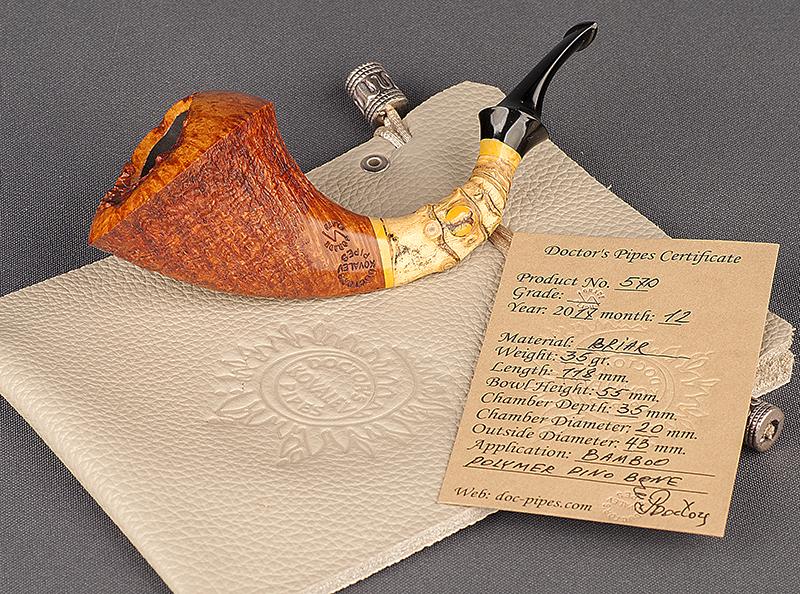 KOVALEV
PIPES
Doctor's Pipes Certificate
Product No. 570
Grade:
Year: 2017 month: 12
Material: BRIAR
Weight: 35 gr.
Length: 118 mm.
Bowl Height: 55 mm.
Chamber Depth: 35 mm.
Chamber Diameter: 20 mm.
Outside Diameter: 43 mm.
Application: BAMBOO
POLYMER DINO BONE
Web: doc-pipes.com Doctor